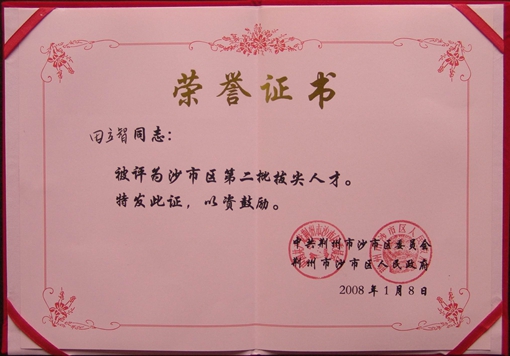 荣誉证书
田立智同志：
被评为沙市区第二批拔尖人才。
特发此证，以资鼓励。
中共荆州市沙市区委员会
荆州市沙市区人民政府
2008年1月8日